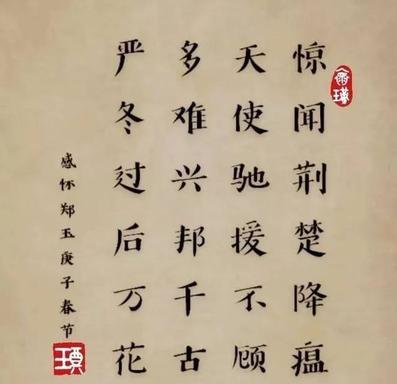 惊闻荆楚降瘟
天使驰援不顾
多难兴邦千古
严冬过后万花
感怀郑玉庚子春节